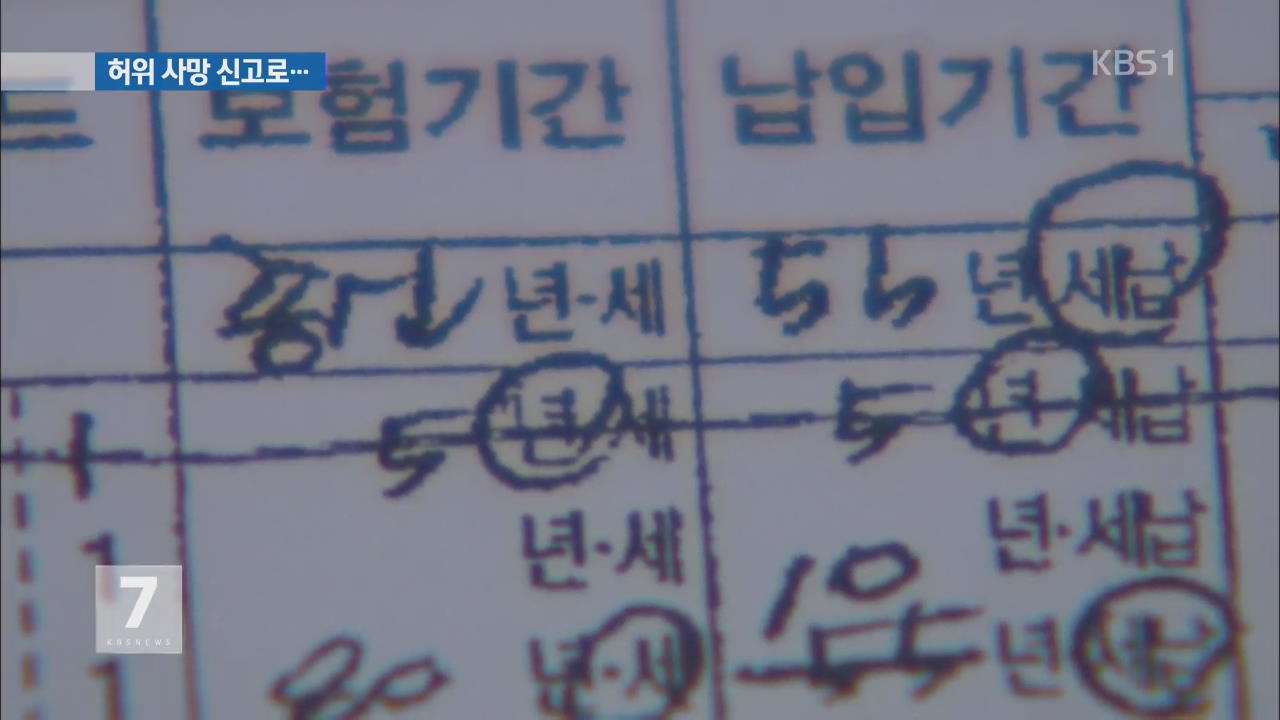 허위 사망 신고로…
KBS1
드 보험기간 납입기간
종신 년·세 55 년 세납
1 5 년·세 5 년 세납
1 년·세 년·세납
1 80 년·세 10 년 세납
7
KBSNEWS